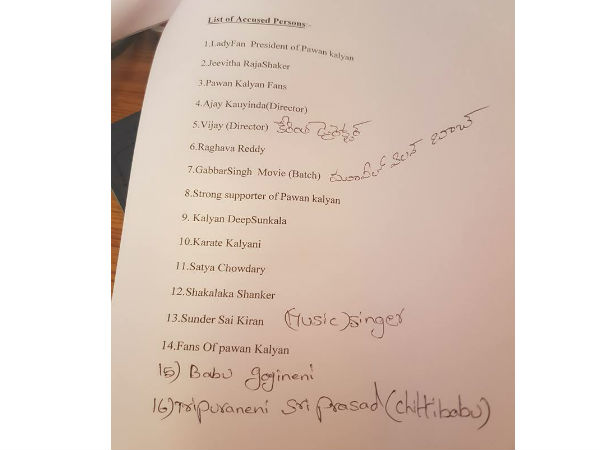 List of Accused Persons:-
1.LadyFan President of Pawan kalyan
2.Jeevitha RajaShaker
3.Pawan Kalyan Fans
4.Ajay Kauyinda(Director)
5.Vijay (Director)
6.Raghava Reddy
7.GabbarSingh Movie (Batch)
8.Strong supporter of Pawan kalyan
9. Kalyan DeepSunkala
10.Karate Kalyani
11.Satya Chowdary
12.Shakalaka Shanker
13.Sunder Sai Kiran (Music) singer
14.Fans Of pawan Kalyan
15) Babu gogineni
16) Tripuraneni Sri prasad (chittibabu)